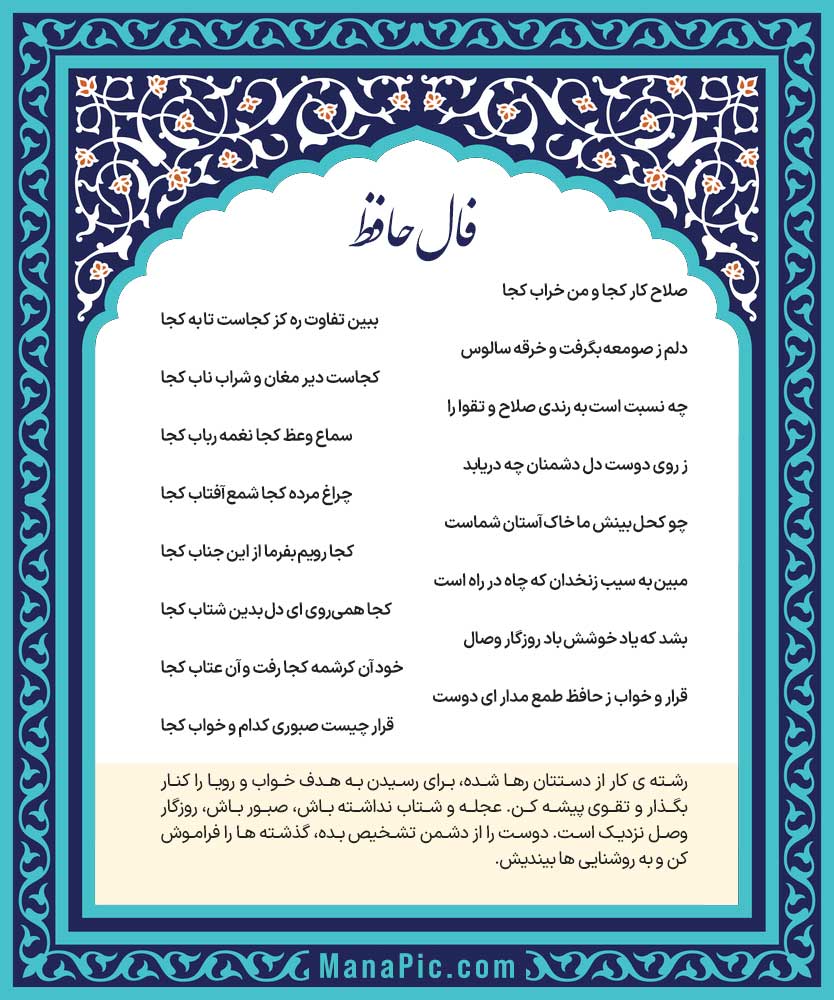 فال حافظ
صلاح کار کجا و من خراب کجا
ببین تفاوت ره کز کجاست تا به کجا
دلم ز صومعه بگرفت و خرقه سالوس
کجاست دیر مغان و شراب ناب کجا
چه نسبت است به رندی صلاح و تقوا را
سماع وعظ کجا نغمه رباب کجا
ز روی دوست دل دشمنان چه دریابد
چراغ مرده کجا شمع آفتاب کجا
چو کحل بینش ما خاک آستان شماست
کجا رویم بفرما از این جناب کجا
مبین به سیب زنخدان که چاه در راه است
کجا همی‌روی ای دل بدین شتاب کجا
بشد که یاد خوشش باد روزگار وصال
خود آن کرشمه کجا رفت و آن عتاب کجا
قرار و خواب ز حافظ طمع مدار ای دوست
قرار چیست صبوری کدام و خواب کجا
رشته ی کار از دستتان رها شده، برای رسیدن به هدف خواب و رویا را کنار
بگذار و تقوی پیشه کن. عجله و شتاب نداشته باش، صبور باش، روزگار
وصل نزدیک است. دوست را از دشمن تشخیص بده، گذشته ها را فراموش
کن و به روشنایی ها بیندیش.
ManaPic.com